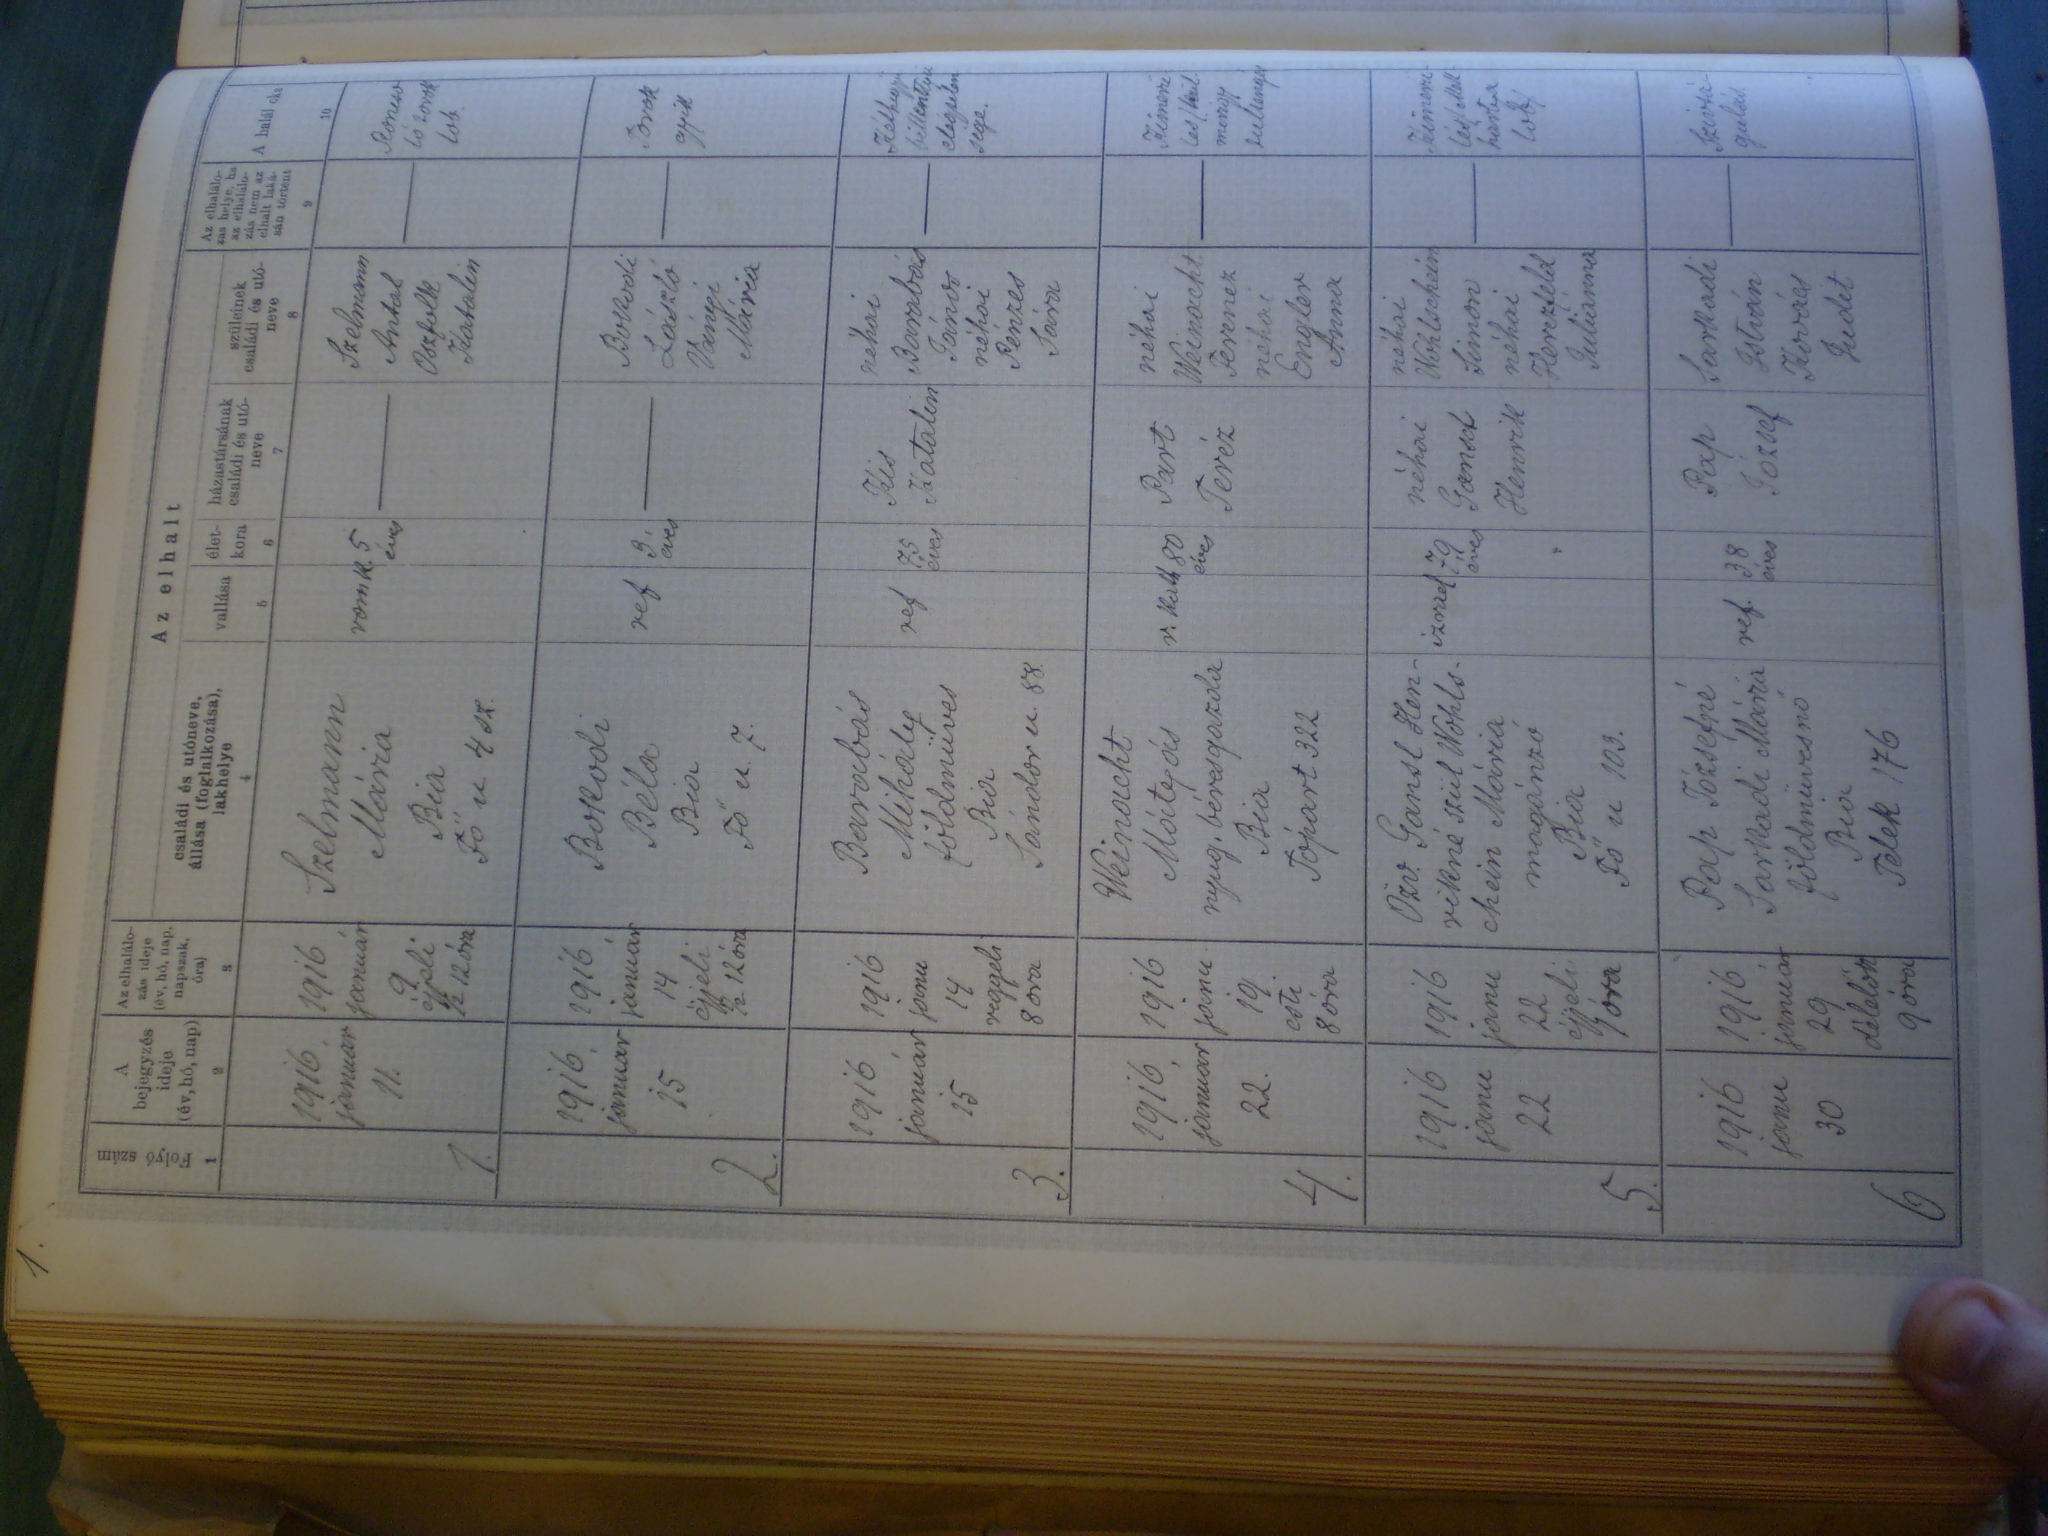 1.
Az elhalt
Folyó szám
1
A bejegyzés ideje (év, hó, nap)
2
Az elhalálo-
zás ideje
(év, hó, nap,
napszak,
óra)
3
családi és utóneve,
állása (foglalkozása),
lakhelye
4
vallása
5
élet-
kora
6
házastársának
családi és utó-
neve
7
szüleinek
családi és utó-
neve
8
Az elhalálo-
zás helye, ha
az elhalálo-
zás nem az
elhalt laká-
sán történt
9
A halál oka
10
1.
1916
január
11.
1916
január
9
éjjeli
½ 12 óra
Szelmann
Mária
Bia
Fő u 4 sz.
rom k.
5
éves
Szelmann
Antal
Katalin
Roncso
ló torok
lob
2.
1916
január
15
1916
január
14
éjjeli
½ 12 óra
Bozodi
Béla
Bia
Fő u. 7.
ref
3
éves
Bozodi
László
Ványi
Mária
Torok
gyik
3.
1916
január
15
1916
janu
14
reggeli
8 óra
Barabás
Mihály
földmüves
Bia
Sándor u. 88.
ref
75
éves
Kis
Katalin
néhai
Barabás
János
néhai
Pénzes
Sára
4.
1916
január
22.
1916
janu
19
esti
8 óra
Weinacht
Mátyás
nyug. béresgazda
Bia
Tópart 322
r. kath
80
éves
Part
Teréz
néhai
Weinacht
Ferencz
néhai
Engler
Anna
5.
1916
janu
22
1916
janu
22
éjjeli
1 óra
Özv. Gansl Hen-
rikné szül Wohls-
chein Mária
magánzó
Bia
Fő u 103.
izrael
79
éves
néhai
Gansl
Henrik
néhai
Wohlschein
Simon
néhai
Herczfeld
Juliánna
6
1916
janu
30
1916
január
29
délelőtt
9 óra
Pap Józsefné
Sarkadi Mária
földmüvesnő
Bia
Telek 176
ref.
38
éves
Pap
József
Sarkadi
István
Kovács
Judit